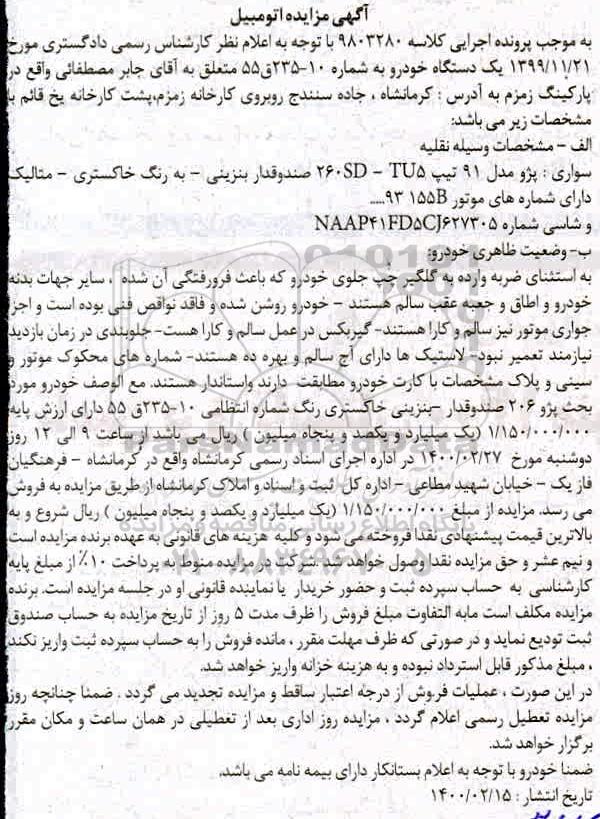 آگهی مزایده اتومبیل
به موجب پرونده اجرایی کلاسه ۹۸۰۳۲۸۰ با توجه به اعلام نظر کارشناس رسمی دادگستری مورخ
۱۳۹۹/۱۱/۲۱ یک دستگاه خودرو به شماره ۱۰-۲۳۵ق۵۵ متعلق به آقای جابر مصطفائی واقع در
پارکینگ زمزم به آدرس : کرمانشاه ، جاده سنندج روبروی کارخانه زمزم،پشت کارخانه یخ قائم با
مشخصات زیر می باشد:
الف - مشخصات وسیله نقلیه
سواری : پژو مدل ۹۱ تیپ ۲۶۰SD - TU۵ صندوقدار بنزینی - به رنگ خاکستری - متالیک
دارای شماره های موتور ۱۵۵B ۹۳.....
و شاسی شماره NAAP۴۱FD۵CJ۶۲۷۳۰۵
ب- وضعیت ظاهری خودرو:
به استثنای ضربه وارده به گلگیر چپ جلوی خودرو که باعث فرورفتگی آن شده ، سایر جهات بدنه
خودرو و اطاق و جعبه عقب سالم هستند - خودرو روشن شده و فاقد نواقص فنی بوده است و اجزا
جواری موتور نیز سالم و کارا هستند- گیربکس در عمل سالم و کارا هست- جلوبندی در زمان بازدید
نیازمند تعمیر نبود- لاستیک ها دارای آج سالم و بهره ده هستند- شماره های محکوک موتور و
سینی و پلاک مشخصات با کارت خودرو مطابقت دارند واستاندار هستند. مع الوصف خودرو مورد
بحث پژو ۲۰۶ صندوقدار -بنزینی خاکستری رنگ شماره انتظامی ۱۰-۲۳۵ق ۵۵ دارای ارزش پایه
۱/۱۵۰/۰۰۰/۰۰۰ (یک میلیارد و یکصد و پنجاه میلیون ) ریال می باشد از ساعت ۹ الی ۱۲ روز
دوشنبه مورخ ۱۴۰۰/۰۲/۲۷ در اداره اجرای اسناد رسمی کرمانشاه واقع در کرمانشاه - فرهنگیان
فاز یک - خیابان شهید مطاعی - اداره کل ثبت و اسناد و املاک کرمانشاه از طریق مزایده به فروش
می رسد. مزایده از مبلغ ۱/۱۵۰/۰۰۰/۰۰۰ (یک میلیارد و یکصد و پنجاه میلیون ) ریال شروع و به
بالاترین قیمت پیشنهادی نقدا فروخته می شود و کلیه هزینه های قانونی به عهده برنده مزایده است.
و نیم عشر و حق مزایده نقدا وصول خواهد شد .شرکت در مزایده منوط به پرداخت ۱۰٪ از مبلغ پایه
کارشناسی به حساب سپرده ثبت و حضور خریدار یا نماینده قانونی او در جلسه مزایده است. برنده
مزایده مکلف است مابه التفاوت مبلغ فروش را ظرف مدت ۵ روز از تاریخ مزایده به حساب صندوق
ثبت تودیع نماید و در صورتی که ظرف مهلت مقرر ، مانده فروش را به حساب سپرده ثبت واریز نکند
، مبلغ مذکور قابل استرداد نبوده و به هزینه خزانه واریز خواهد شد.
در این صورت ، عملیات فروش از درجه اعتبار ساقط و مزایده تجدید می گردد . ضمنا چنانچه روز
مزایده تعطیل رسمی اعلام گردد ، مزایده روز اداری بعد از تعطیلی در همان ساعت و مکان مقرر
برگزار خواهد شد.
ضمنا خودرو با توجه به اعلام بستانکار دارای بیمه نامه می باشد.
تاریخ انتشار : ۱۴۰۰/۰۲/۱۵